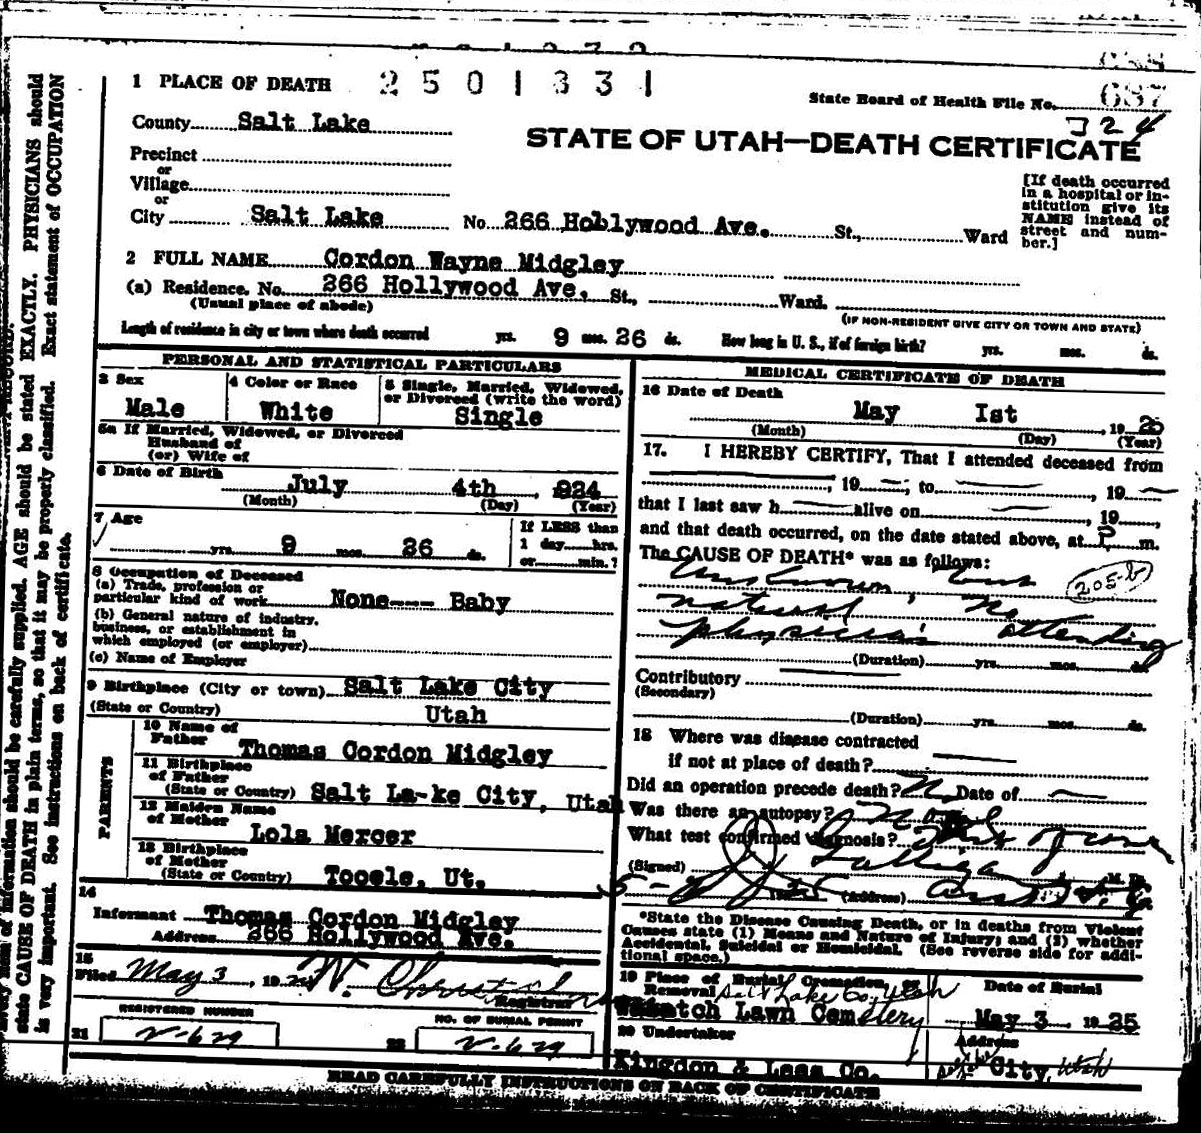 1 PLACE OF DEATH 2501331
State Board of Health File No. 687
324
County Salt Lake
STATE OF UTAH—DEATH CERTIFICATE
Precinct
or
Village
or
City Salt Lake No. 266 Hollywood Ave. St., Ward
[If death occurred
in a hospital or in-
stitution give its
NAME instead of
street and num-
ber.]
2 FULL NAME Gordon Wayne Midgley
(a) Residence. No. 266 Hollywood Ave. St., Ward.
(Usual place of abode)
(IF NON-RESIDENT GIVE CITY OR TOWN AND STATE)
Length of residence in city or town where death occurred yrs. 9 mos. 26 ds. How long in U. S., if of foreign birth? yrs. mos. ds.
PERSONAL AND STATISTICAL PARTICULARS
3 Sex
Male
4 Color or Race
White
5 Single, Married, Widowed,
or Divorced (write the word)
Single
5a If Married, Widowed, or Divorced
Husband of
(or) Wife of
6 Date of Birth July 4th, 924
(Month) (Day) (Year)
7 Age
yrs. 9 mos. 26 ds.
If LESS than
1 day hrs.
or min.?
8 Occupation of Deceased
(a) Trade, profession or
particular kind of work None--- Baby
(b) General nature of industry,
business, or establishment in
which employed (or employer)
(c) Name of Employer
9 Birthplace (City or town) Salt Lake City
(State or Country) Utah
PARENTS
10 Name of
Father Thomas Gordon Midgley
11 Birthplace
of Father
(State or Country) Salt La-ke City, Utah
12 Maiden Name
of Mother Lola Mercer
13 Birthplace
of Mother
(State or Country) Tooele, Ut.
14
Informant Thomas Gordon Midgley
Address 266 Hollywood Ave.
15
Filed May 3, 192
Registrar
REGISTERED NUMBER
21 V-629
NO. OF BURIAL PERMIT
22 V-629
MEDICAL CERTIFICATE OF DEATH
16 Date of Death
May Ist, 1925
(Month) (Day) (Year)
17. I HEREBY CERTIFY, That I attended deceased from
, 19 —; to — , 19 —
that I last saw h — alive on — , 19
and that death occurred, on the date stated above, at P. m.
The CAUSE OF DEATH* was as follows:
Unknown, but 205-b
natural, No
physician attending
(Duration) yrs. mos. ds.
Contributory
(Secondary)
(Duration) yrs. mos. ds.
18 Where was disease contracted
if not at place of death?
Did an operation precede death? No Date of —
Was there an autopsy? No
What test confirmed diagnosis?
(Signed) M. D.
(Address)
*State the Disease Causing Death, or in deaths from Violent
Causes state (1) Means and Nature of Injury; and (2) whether
Accidental, Suicidal or Homicidal. (See reverse side for addi-
tional space.)
19 Place of Burial, Cremation, or
Removal Salt Lake Co., Utah
Wasatch Lawn Cemetery
Date of Burial
May 3 1925
20 Undertaker
Kingdon & Lees Co.
Address
Salt Lake City, Utah
READ CAREFULLY INSTRUCTIONS ON BACK OF CERTIFICATE
information should be carefully supplied. AGE should be stated EXACTLY. PHYSICIANS should
state CAUSE OF DEATH in plain terms, so that it may be properly classified. Exact statement of OCCUPATION
is very important. See instructions on back of certificate.